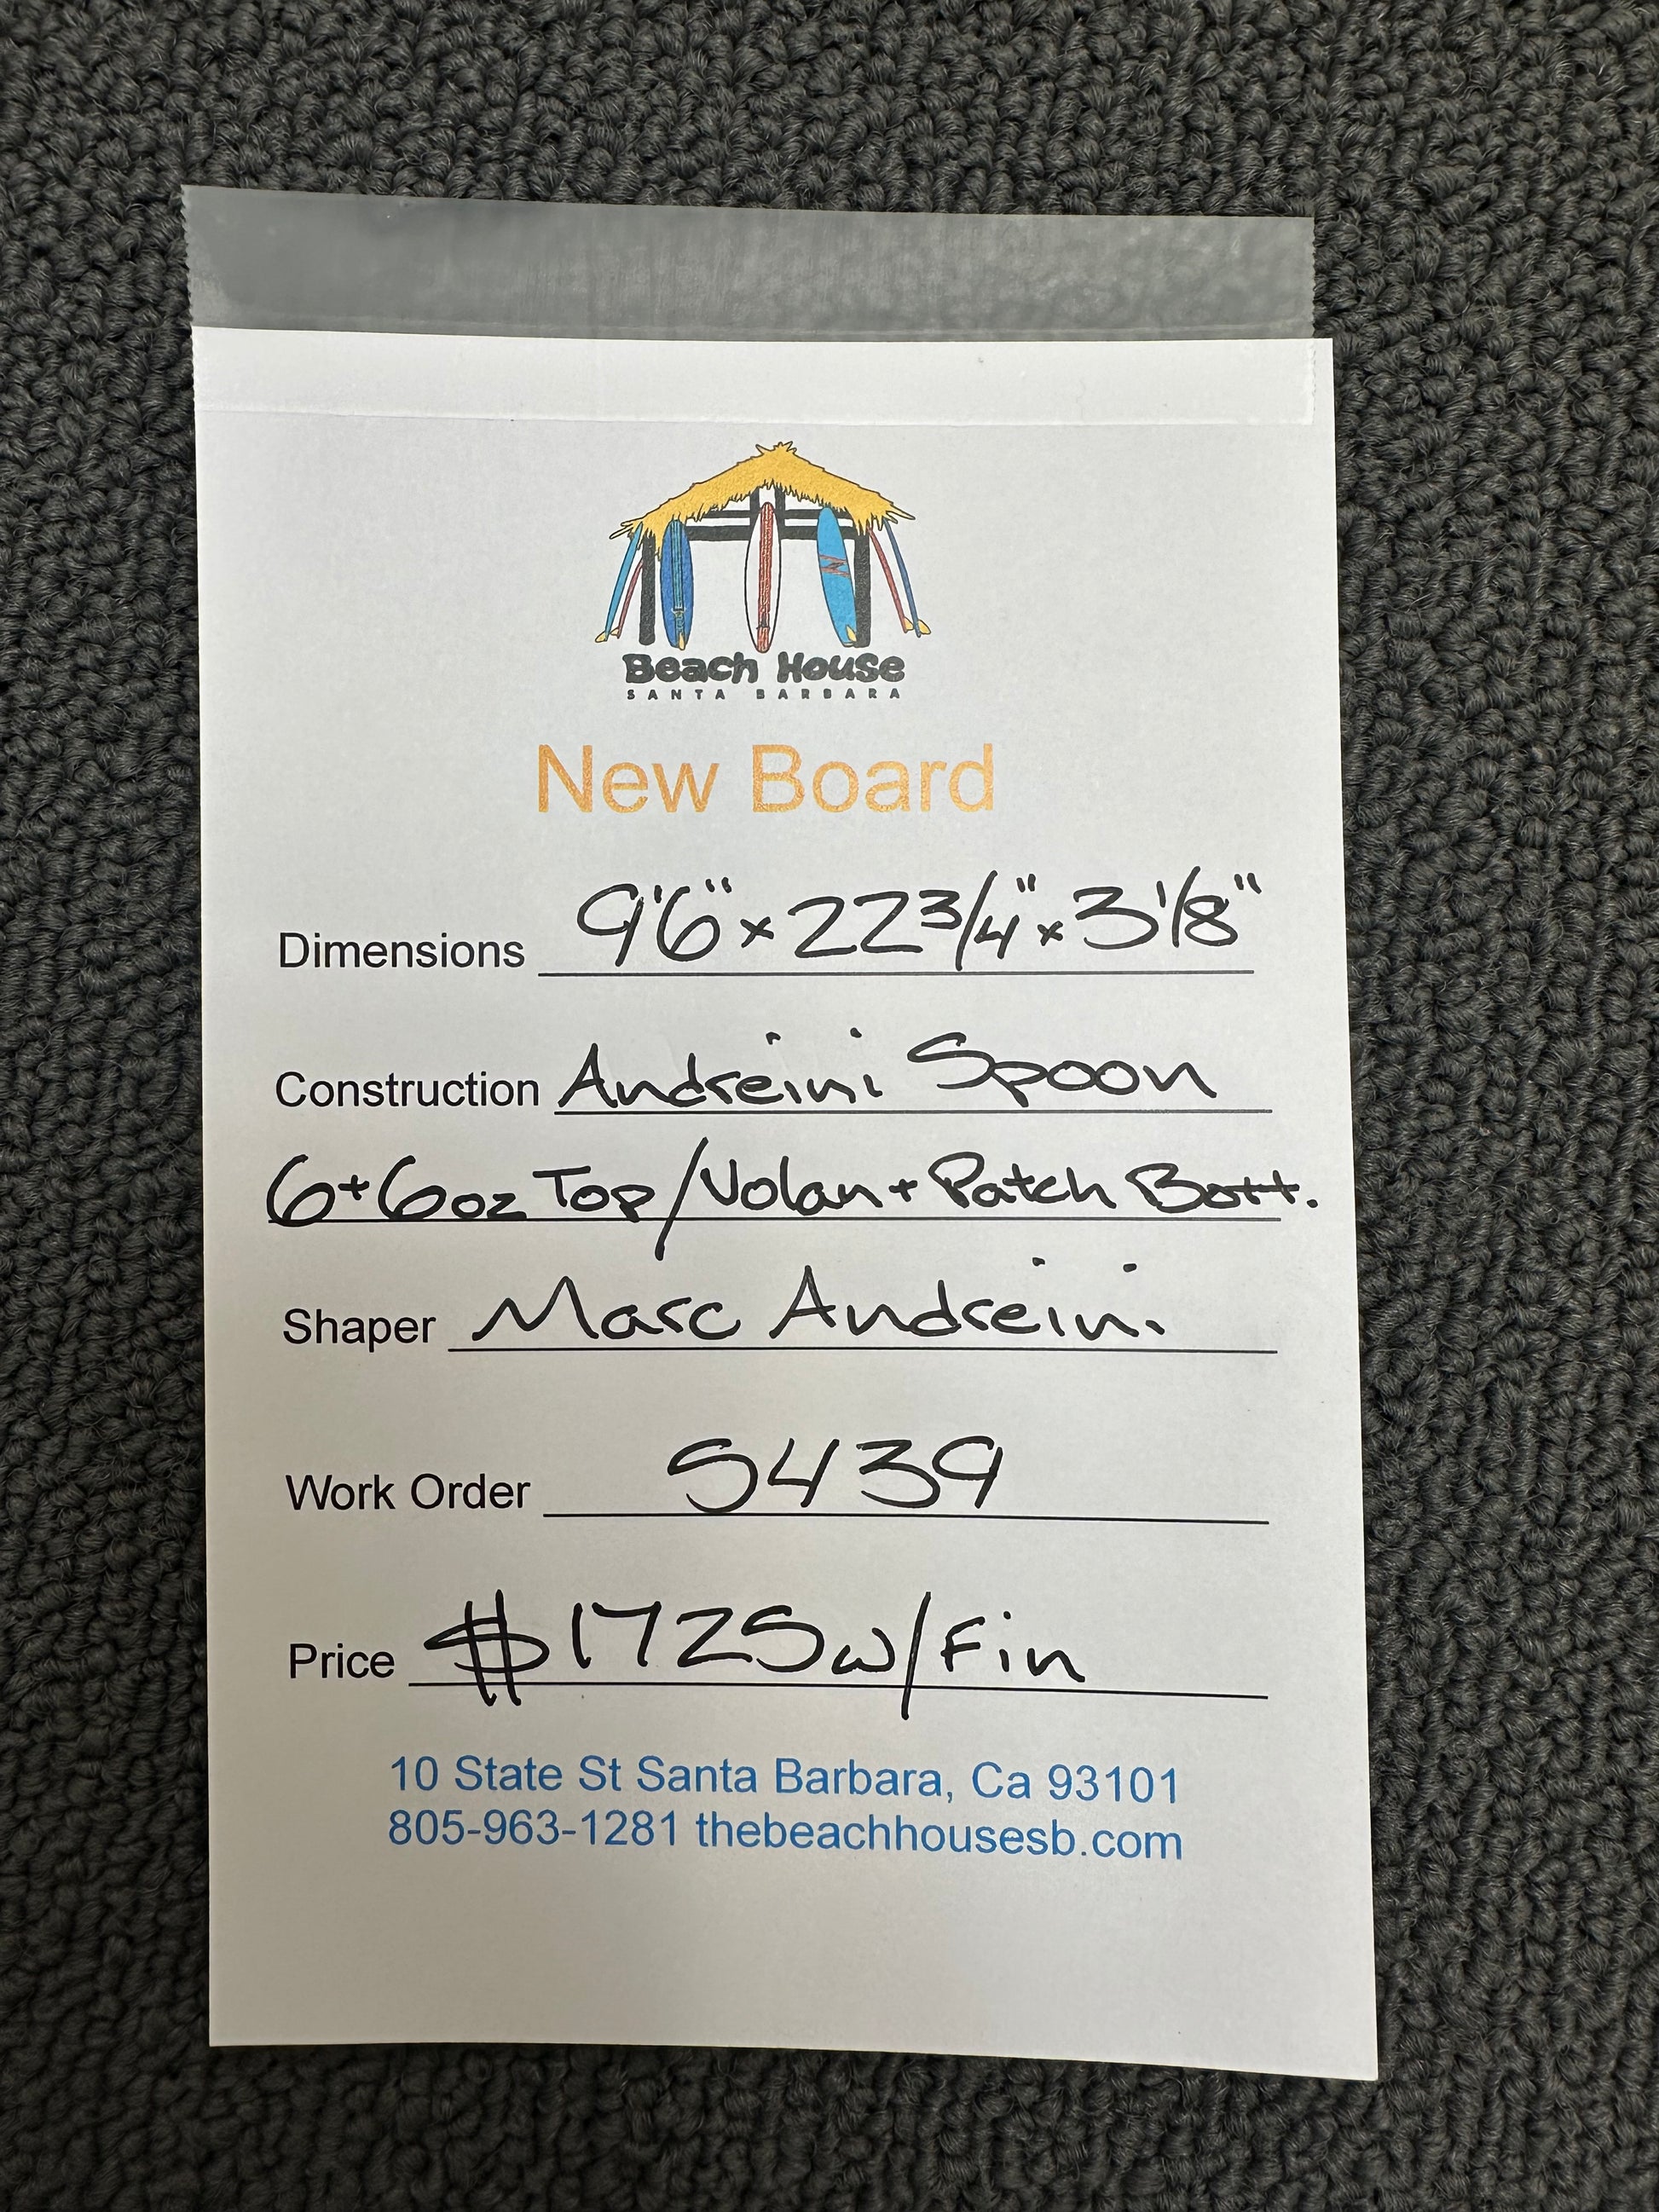 Beach House
SANTA BARBARA
New Board
Dimensions 9'6" x 22 3/4" x 3 1/8"
Construction Andreini Spoon
6+6oz Top/Volan + Patch Bott.
Shaper Marc Andreini
Work Order 5439
Price $1725 w/Fin
10 State St Santa Barbara, Ca 93101
805-963-1281 thebeachhousesb.com